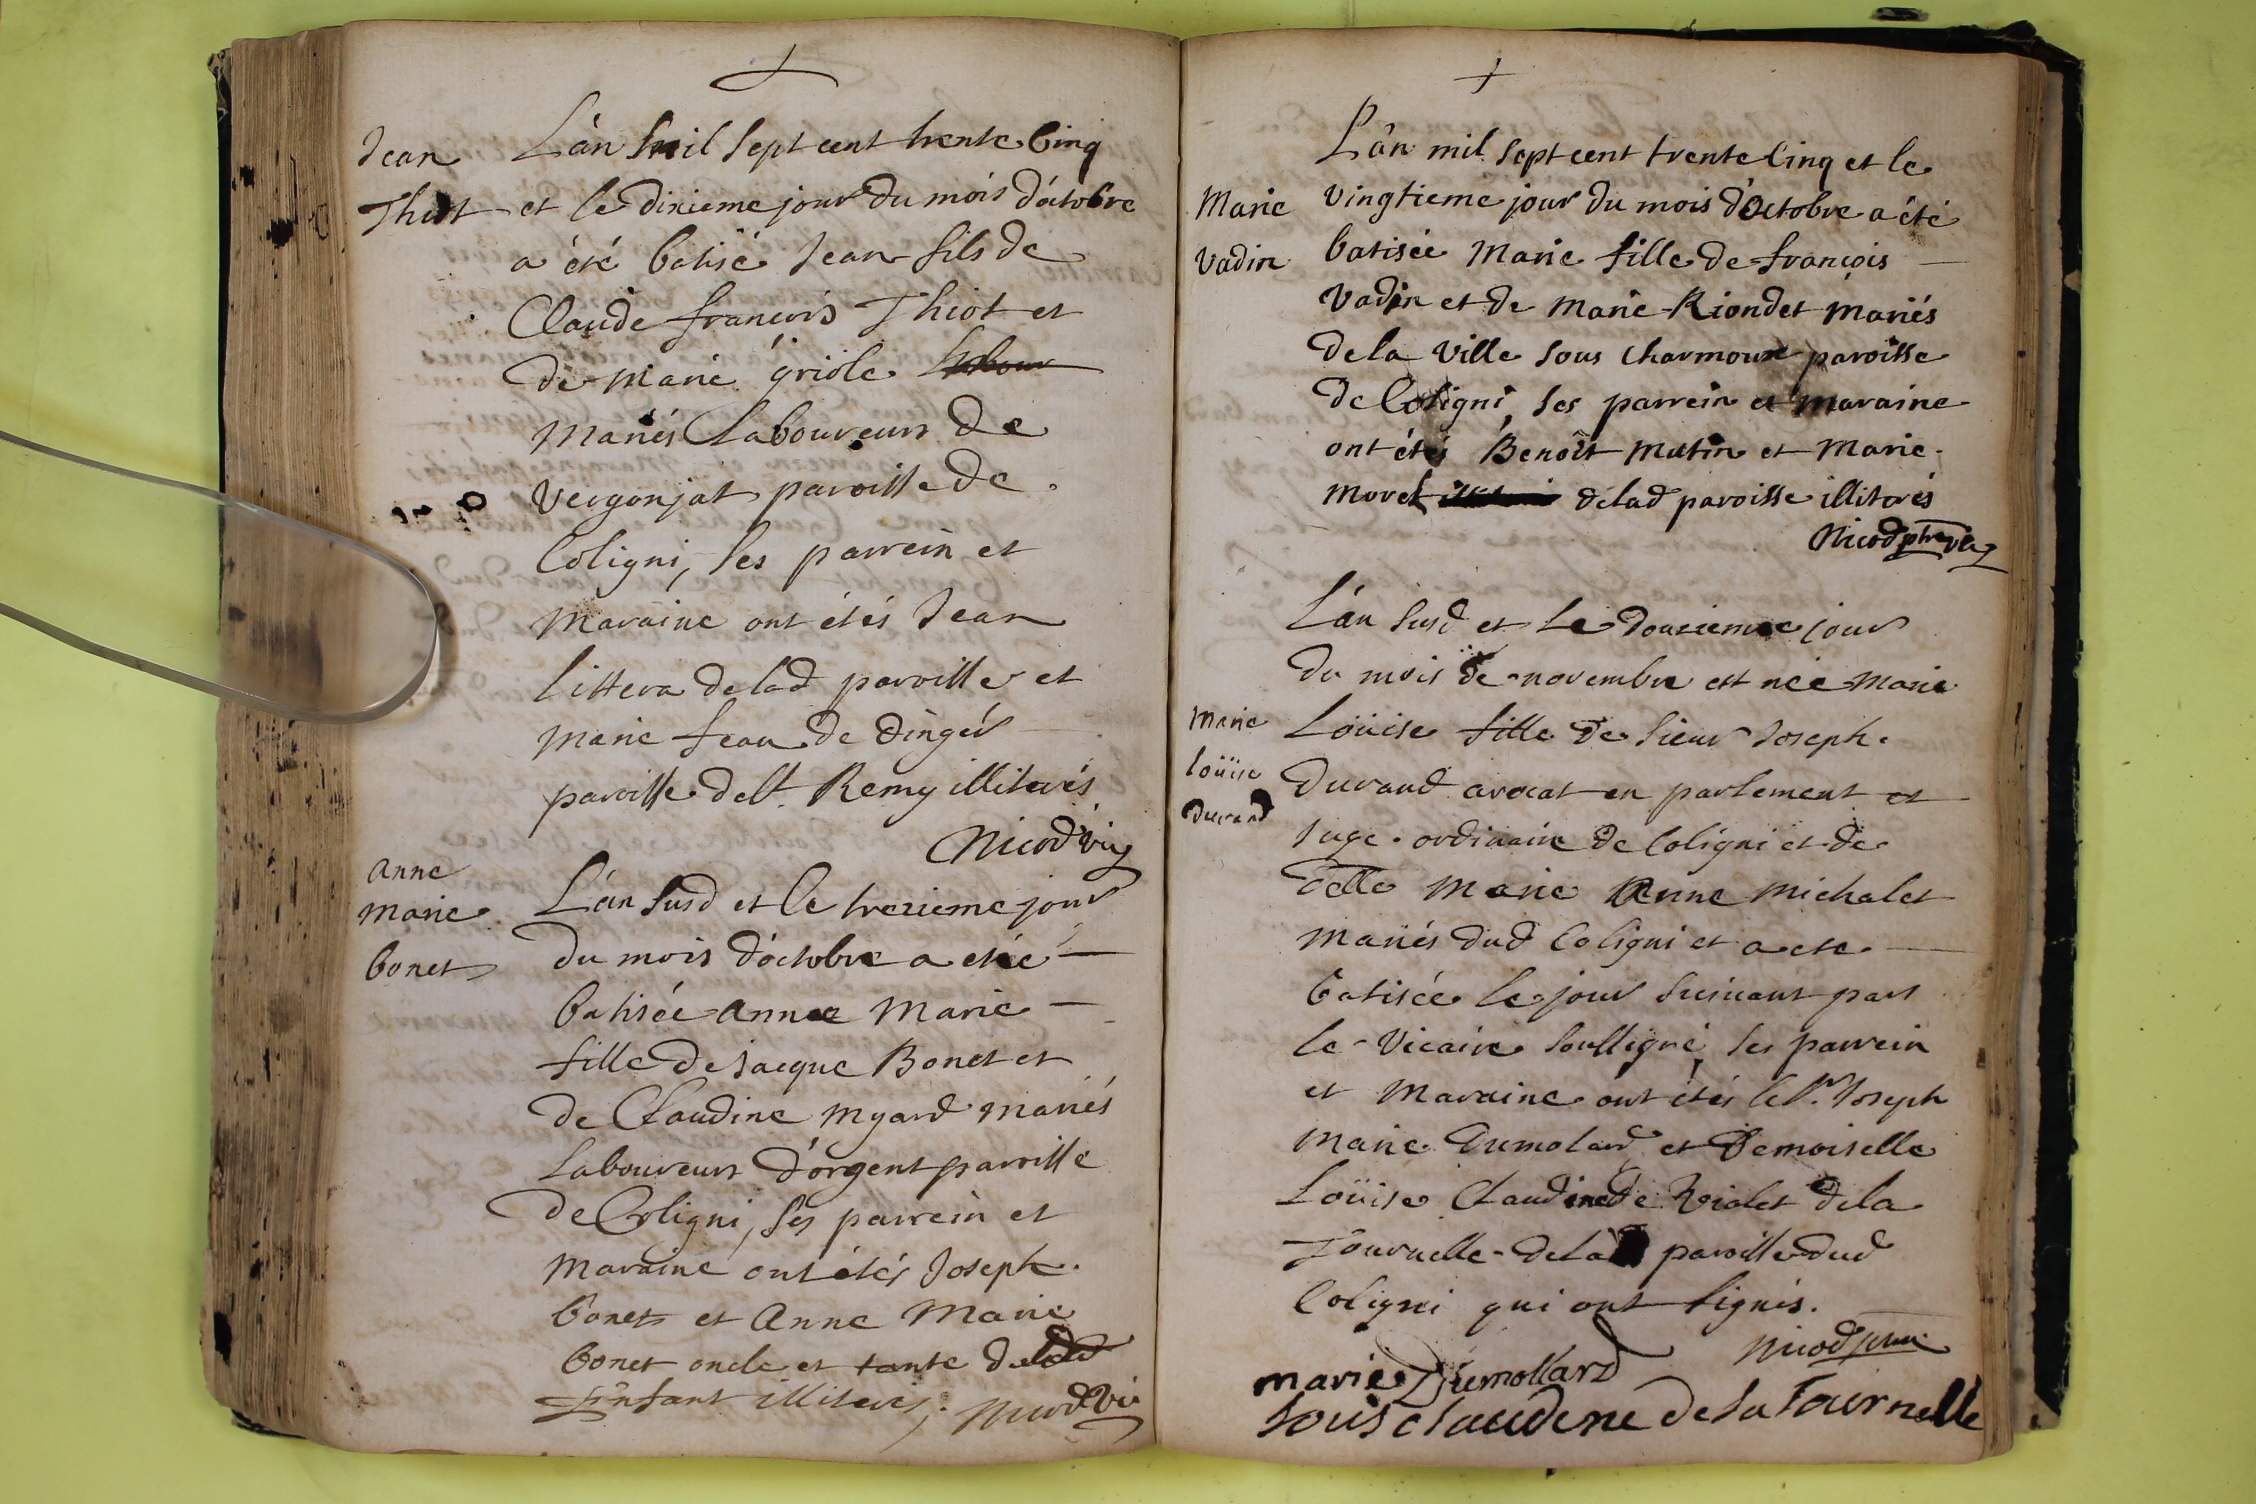 Jean
Thiot
L'an mil sept cent trente cinq
et le dixieme jour du mois d'octobre
a été batisé Jean fils de
Claude françois Thiot et
de Marie griôle
mariés Laboureurs de
Vergonjat paroisse de
Coligni, ses parrein et
maraine ont étés Jean
littera delad paroisse et
marie feau de dingér
paroisse de St. Remy illiterés
Nicod vic
anne
marie
bonet
L'an susd et le trezieme jour
du mois d'octobre a etée
batisée anne Marie
fille de jacque Bonet et
de Claudine Myard mariés
Laboureurs d'orgent paroisse
de Coligni, ses parrein et
maraine ont étés Joseph
bonet et Anne Marie
bonet oncle et tante
L'enfant illiterés, Nicod Vic
Marie
Vadin
L'an mil sept cent trente cinq et le
vingtieme jour du mois d'octobre a été
batisée Marie fille de françois
Vadin et de Marie Riondet mariés
de la ville sous Charmoux paroisse
de Coligni, ses parrein et maraine
ont étés Benoît Mutin et Marie
Morel delad paroisse illiterés
Nicod ptre vic
Marie
loüise
durand
L'an susd et le douzieme jour
du mois de novembre est née Marie
Loüise fille de sieur Joseph
Durand avocat en parlement et
juge ordinaire de Coligni et de
delle Marie Anne Michalet
mariés dud Coligni et a ete
batisée le jour suivant par
le Vicaire soussigné, ses parrein
et Maraine ont étés le Sr. Joseph
Marie Dumolard et Demoiselle
Loüise Claudine de Violet de la
Tournelle dela paroisse dud
Coligni qui ont signés.
Nicod ptre
marie Dumollard
Louis claudene de la Tournelle